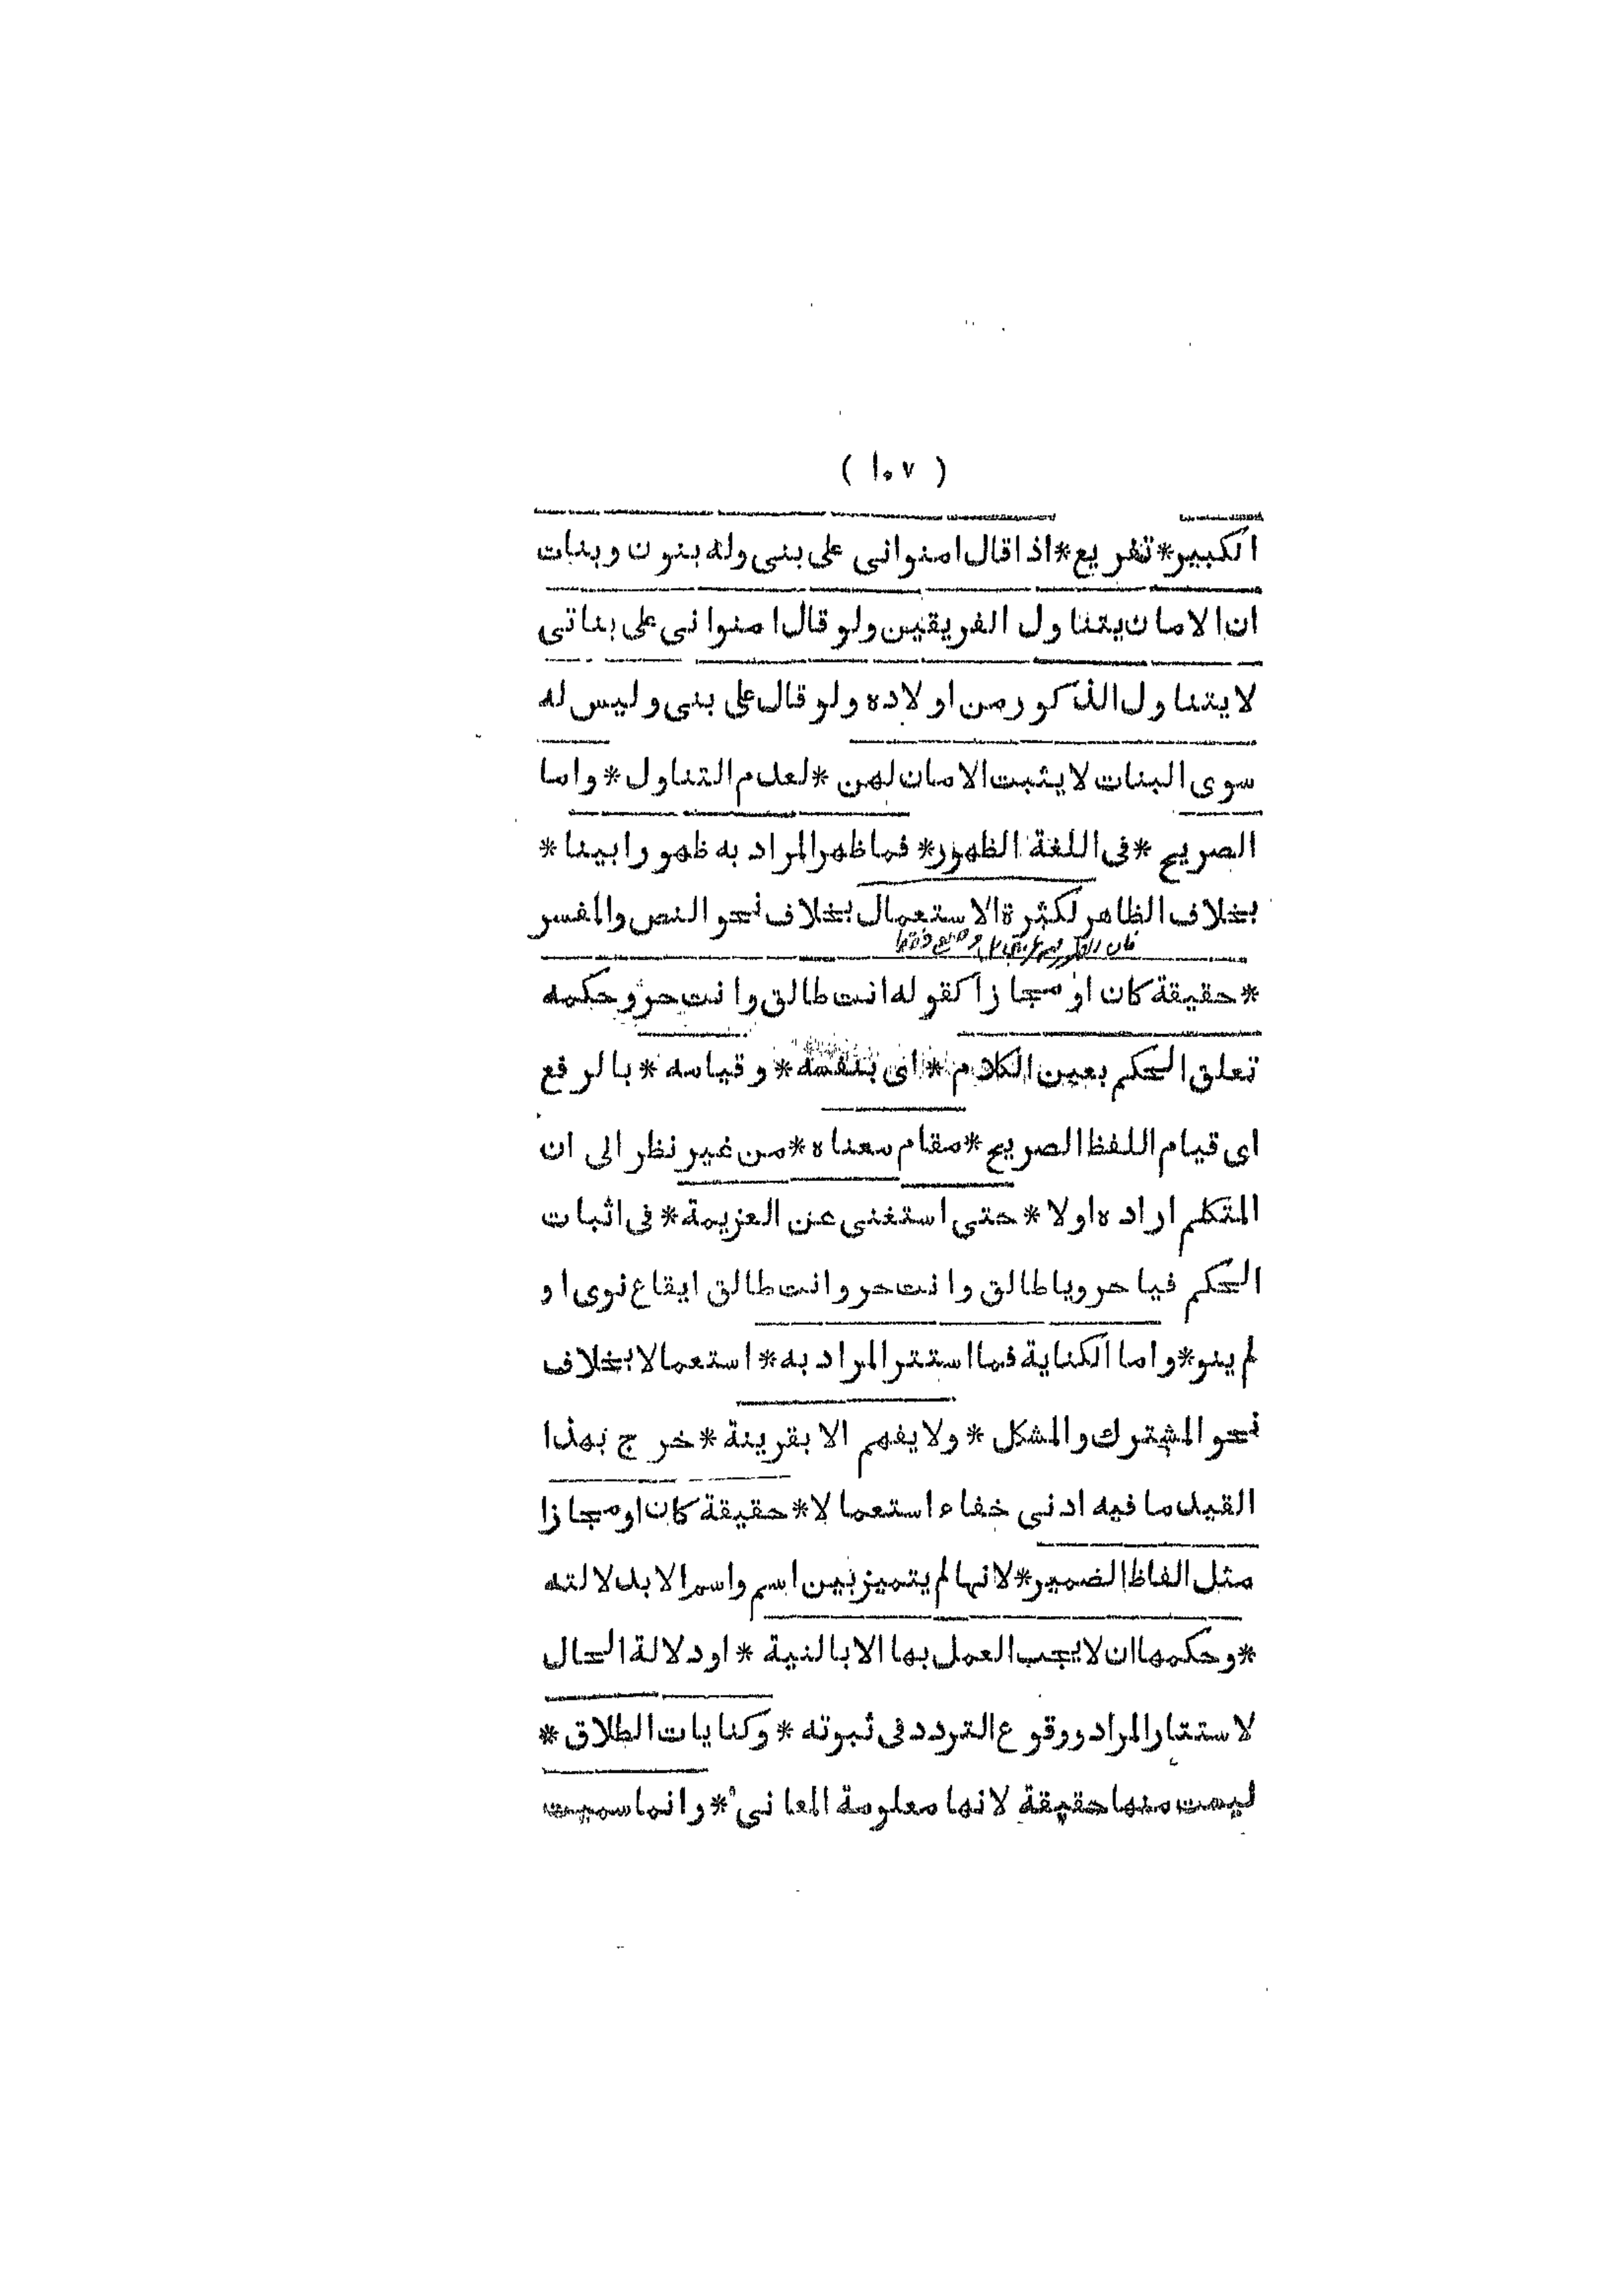 ( ١٠٧ )
الكبير*تفريع*اذا قال امنوانى على بنى وله بنون وبنات
ان الامان يتناول الفريقين ولو قال امنوانى على بناتى
لا يتناول الذكور من اولاده ولو قال على بنى وليس له
سوى البنات لا يثبت الامان لهن *لعدم التناول *واما
الصريح *فى اللغة الظهور* فما ظهر المراد به ظهورا بينا *
بخلاف الظاهر لكثرة الاستعمال بخلاف نحو النص والمفسر
*حقيقة كان او مجازا كقوله انت طالق وانت حر وحكمه
تعلق الحكم بعين الكلام *اى بنفسه* وقياسه *بالرفع
اى قيام اللفظ الصريح *مقام معناه*من غير نظر الى ان
المتكلم اراده اولا *حتى استغنى عن العزيمة* فى اثبات
الحكم فيا حر ويا طالق وانت حر وانت طالق ايقاع نوى او
لم ينو*واما الكناية فما استتر المراد به* استعمالا بخلاف
نحو المشترك والمشكل * ولا يفهم الا بقرينة *خرج بهذا
القيد ما فيه ادنى خفاء استعمالا* حقيقة كان او مجازا
مثل الفاظ الضمير*لانها لم يتميز بين اسم واسم الا بدلالته
*وحكمها ان لا يجب العمل بها الا بالنية *او دلالة الحال
لاستتار المراد ووقوع التردد فى ثبوته *وكنايات الطلاق *
ليست منها حقيقة لانها معلومة المعانى *وانما سميت